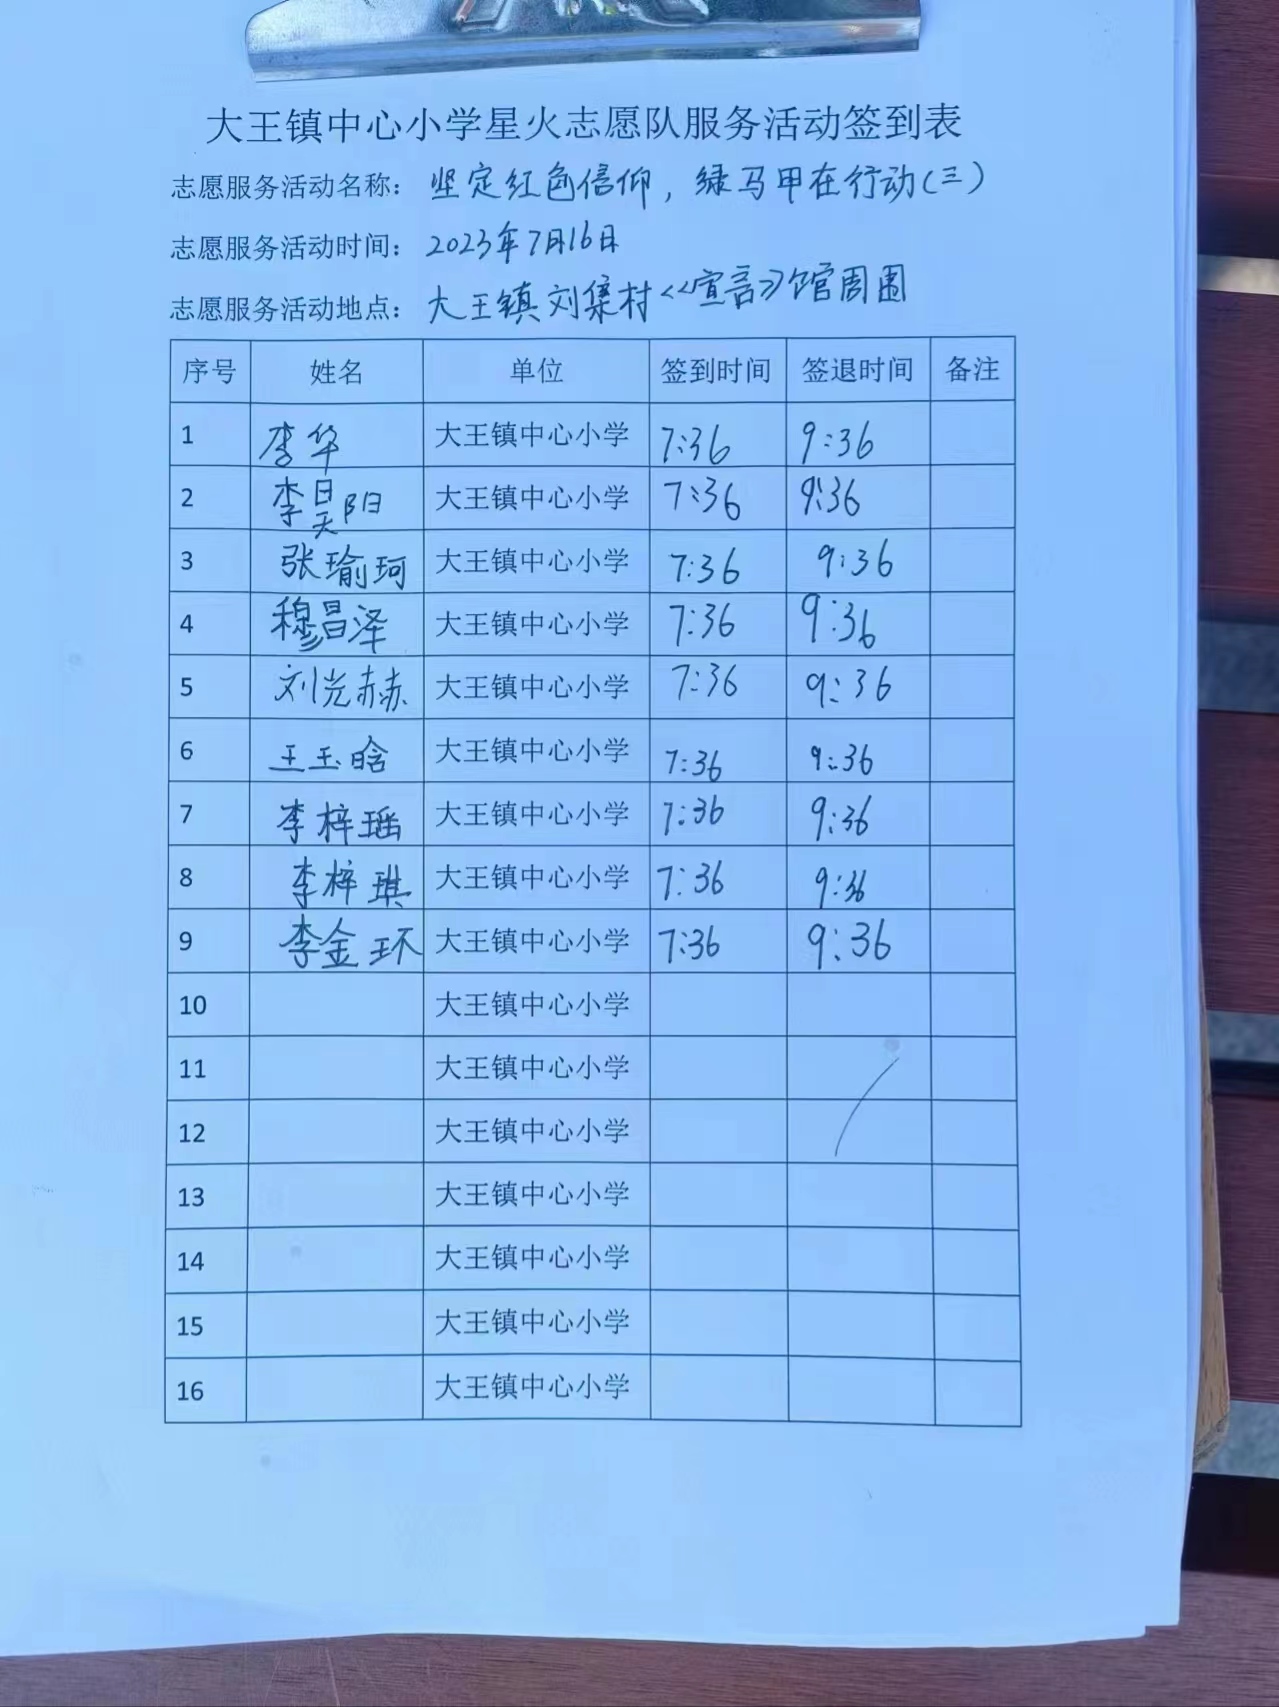 大王镇中心小学星火志愿队服务活动签到表
志愿服务活动名称：坚定红色信仰，绿马甲在行动(三)
志愿服务活动时间：2023年7月16日
志愿服务活动地点：大王镇刘集村《宣言》馆周围
序号 姓名 单位 签到时间 签退时间 备注
1 李华 大王镇中心小学 7:36 9:36
2 李昊阳 大王镇中心小学 7:36 9:36
3 张瑜珂 大王镇中心小学 7:36 9:36
4 穆昌泽 大王镇中心小学 7:36 9:36
5 刘光赫 大王镇中心小学 7:36 9:36
6 王玉晗 大王镇中心小学 7:36 9:36
7 李梓瑶 大王镇中心小学 7:36 9:36
8 李梓琪 大王镇中心小学 7:36 9:36
9 李金环 大王镇中心小学 7:36 9:36
10 大王镇中心小学
11 大王镇中心小学
12 大王镇中心小学
13 大王镇中心小学
14 大王镇中心小学
15 大王镇中心小学
16 大王镇中心小学